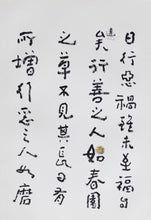 日行惡禍雖未至福自
遠矣行善之人如春園
之草不見其長日有
所增行惡之人如磨